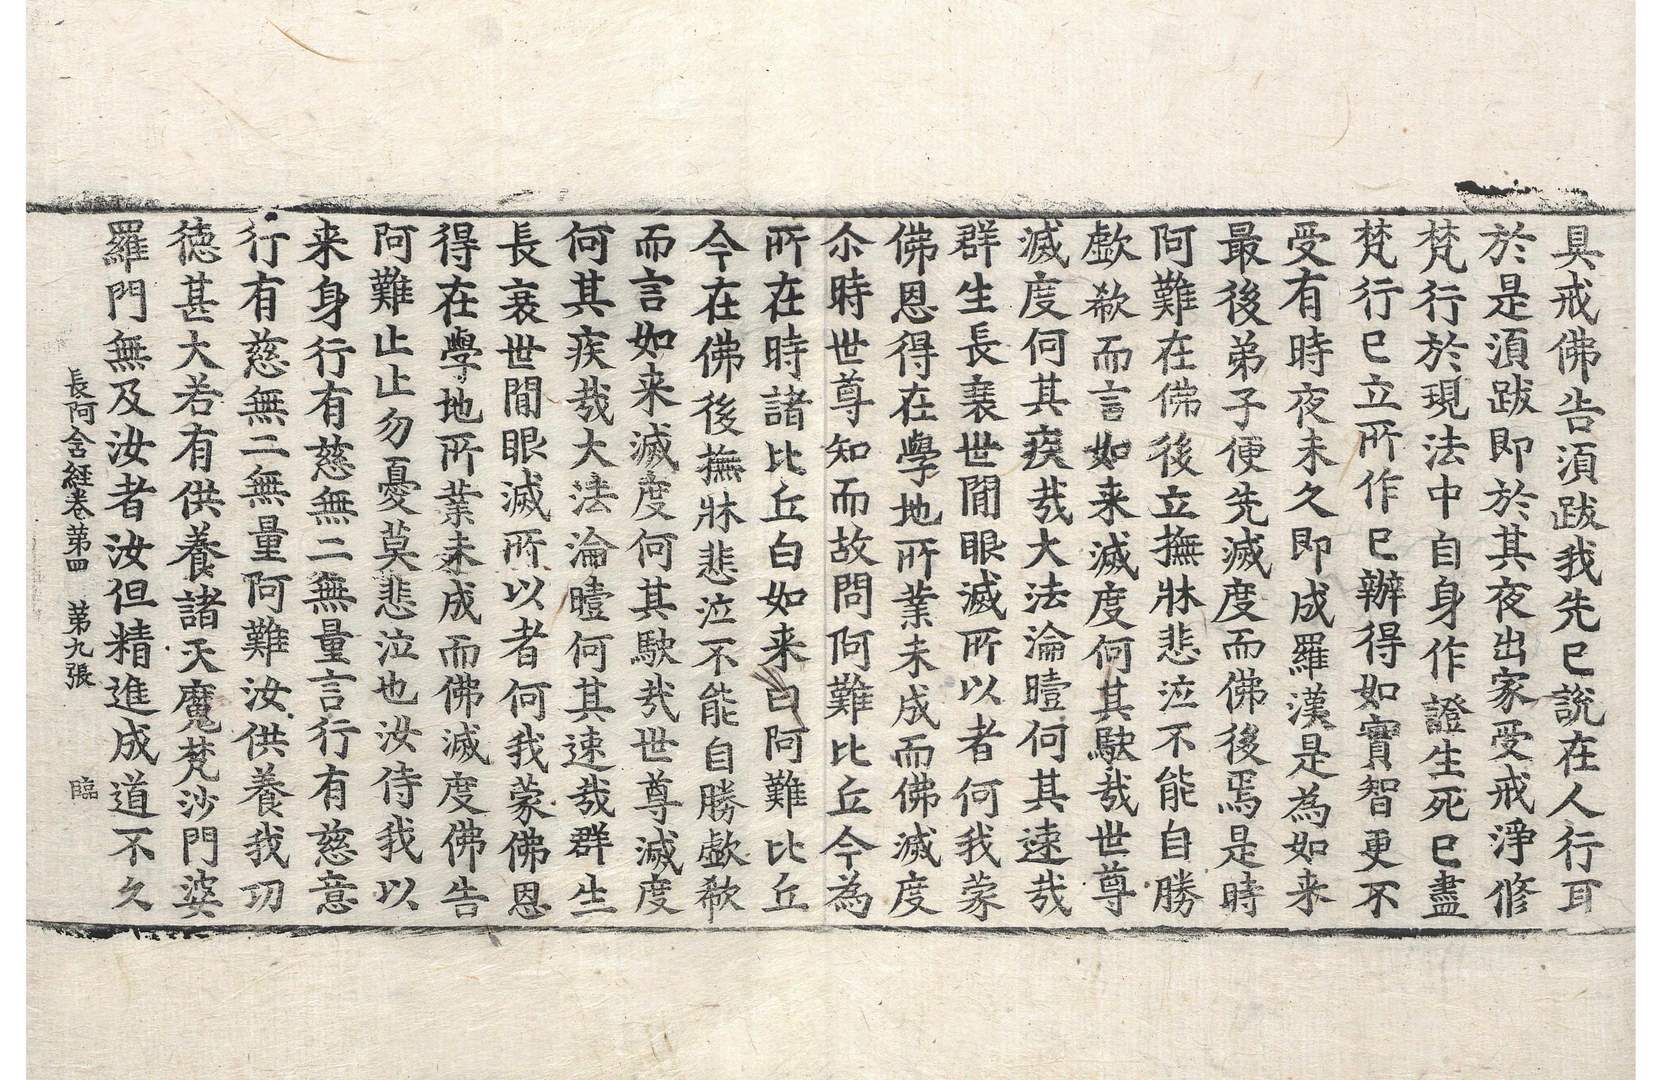 具戒佛告湏跋我先已說在人行耳
於是湏跋即於其夜出家受戒淨修
梵行於現法中自身作證生死已盡
梵行已立所作已辦得如實智更不
受有時夜未久即成羅漢是為如来
最後弟子便先滅度而佛後焉是時
阿難在佛後立撫牀悲泣不能自勝
歔欷而言如来滅度何其駛哉世尊
滅度何其疾哉大法淪曀何其速哉
群生長衰世間眼滅所以者何我蒙
佛恩得在學地所業未成而佛滅度
尒時世尊知而故問阿難比丘今為
所在時諸比丘白如来曰阿難比丘
今在佛後撫牀悲泣不能自勝歔欷
而言如来滅度何其駛哉世尊滅度
何其疾哉大法淪曀何其速哉群生
長衰世間眼滅所以者何我蒙佛恩
得在學地所業未成而佛滅度佛告
阿難止止勿憂莫悲泣也汝侍我以
来身行有慈無二無量言行有慈意
行有慈無二無量阿難汝供養我功
徳甚大若有供養諸天魔梵沙門婆
羅門無及汝者汝但精進成道不久
長阿含經卷第四 第九張 臨